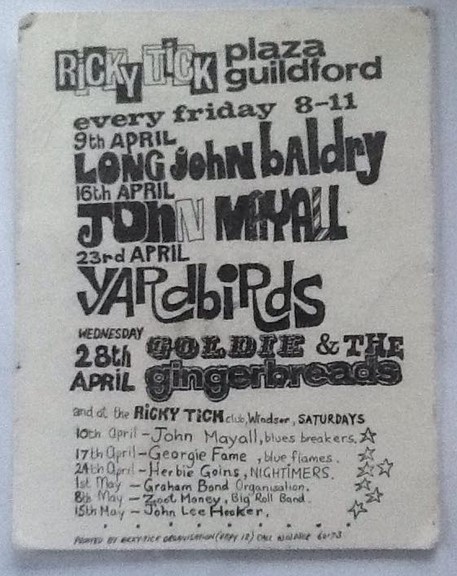 RICKY TICK plaza guildford
every friday 8-11
9th APRIL
LONG John baldry
16th APRIL
JOhN MAYALL
23rd APRIL
YARdbiRds
WEDNESDAY
28th APRIL
GOLDIE & THE
gingerbreads
and at the RICKY TICK club, Windsor, SATURDAYS
10th April - John Mayall, blues breakers.
17th April - Georgie Fame, blue flames.
24th April - Herbie Goins, NIGHTIMERS.
1st May - Graham Bond Organisation.
8th May - Zoot Money, Big Roll Band.
15th May - John Lee Hooker.
RICKY-TICK ORGANISATION CALL WINDSOR